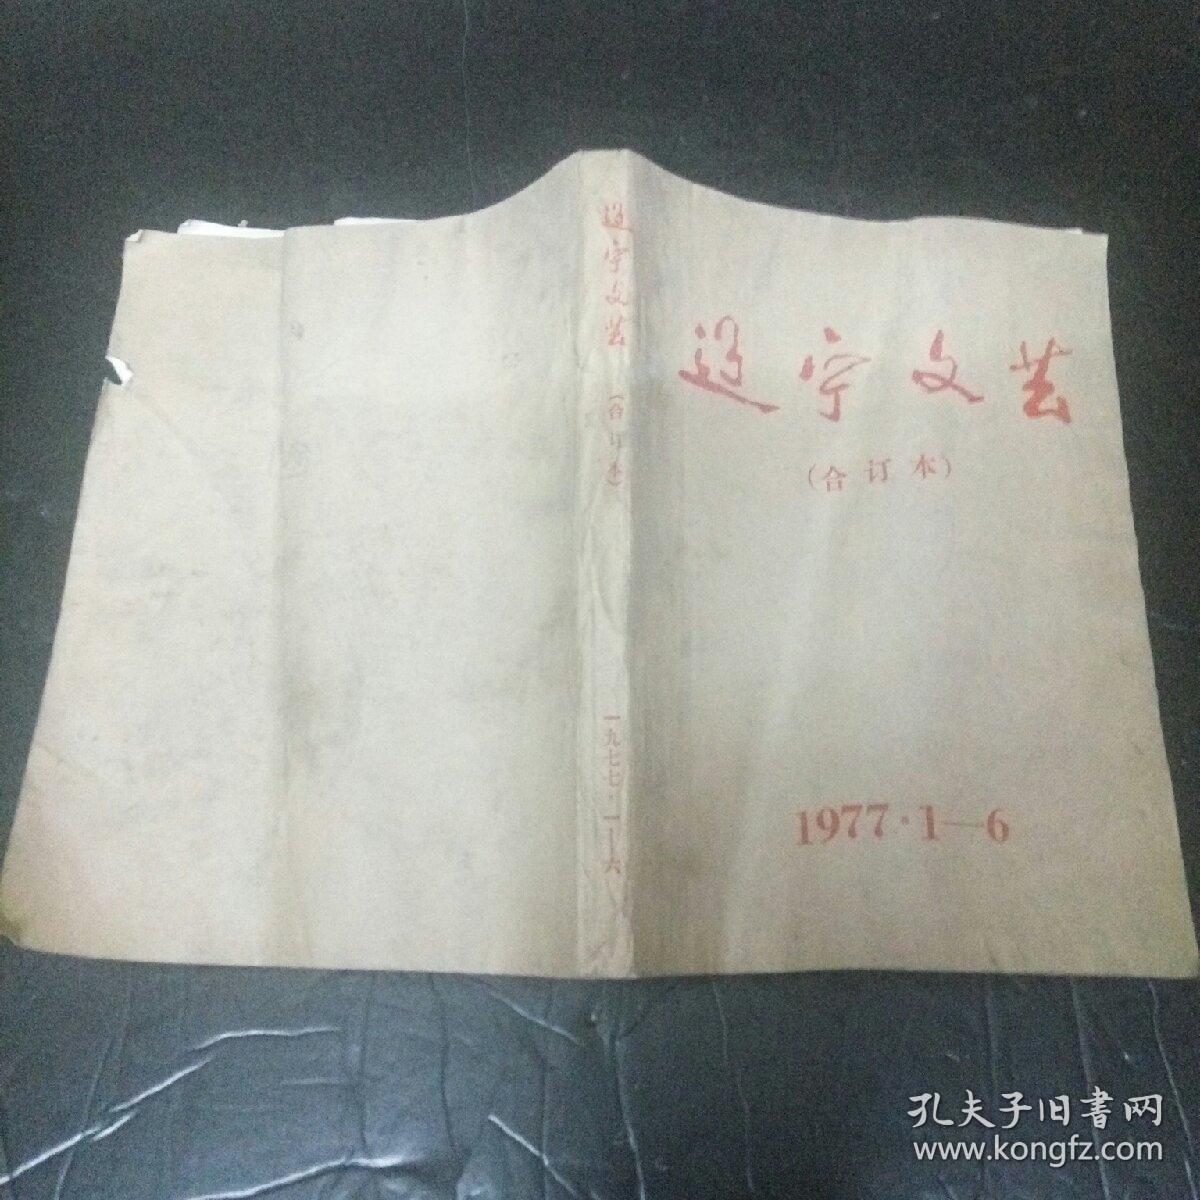 辽宁文芸
(合订本)
1977·1—6
辽宁文芸
(合订本)
一九七七·一—六
孔夫子旧書网
www.kongfz.com